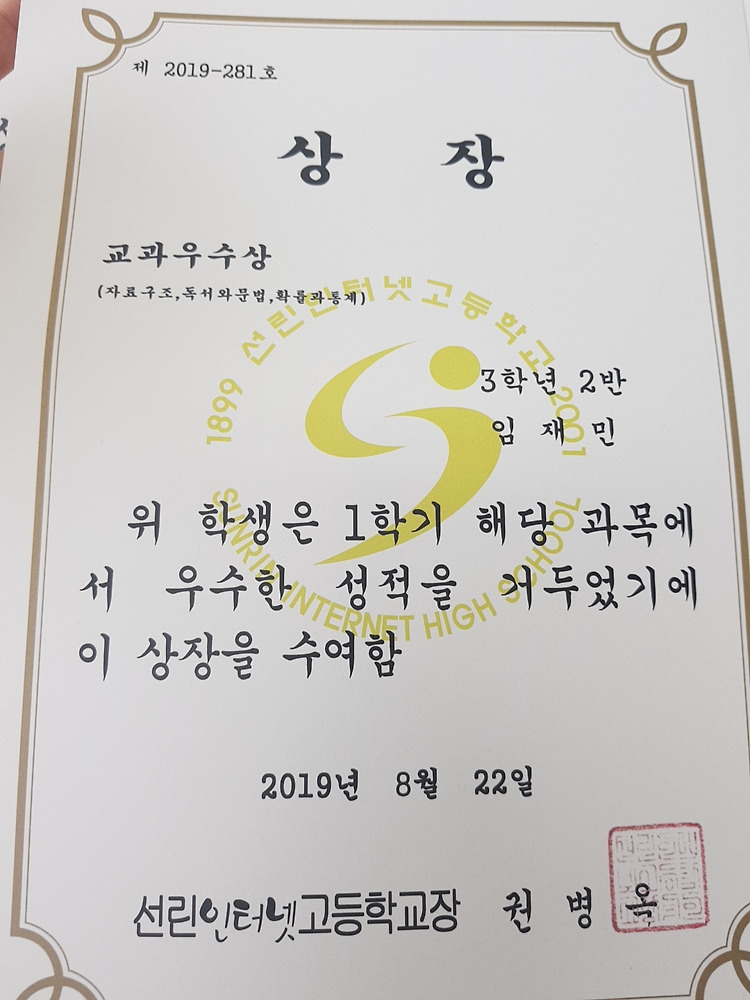 제 2019-281호
상 장
교과우수상
(자료구조,독서와문법,확률과통계)
선린인터넷고등학교
1899
2001
SUNRIN INTERNET HIGH SCHOOL
3학년 2반
임 재 민
위 학생은 1학기 해당 과목에
서 우수한 성적을 거두었기에
이 상장을 수여함
2019년 8월 22일
선린인터넷고등학교장 권 병 옥